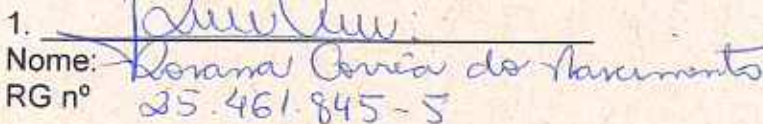 1.
Nome: Rosana Corrêa do Nascimento
RG nº 25.461.845-5